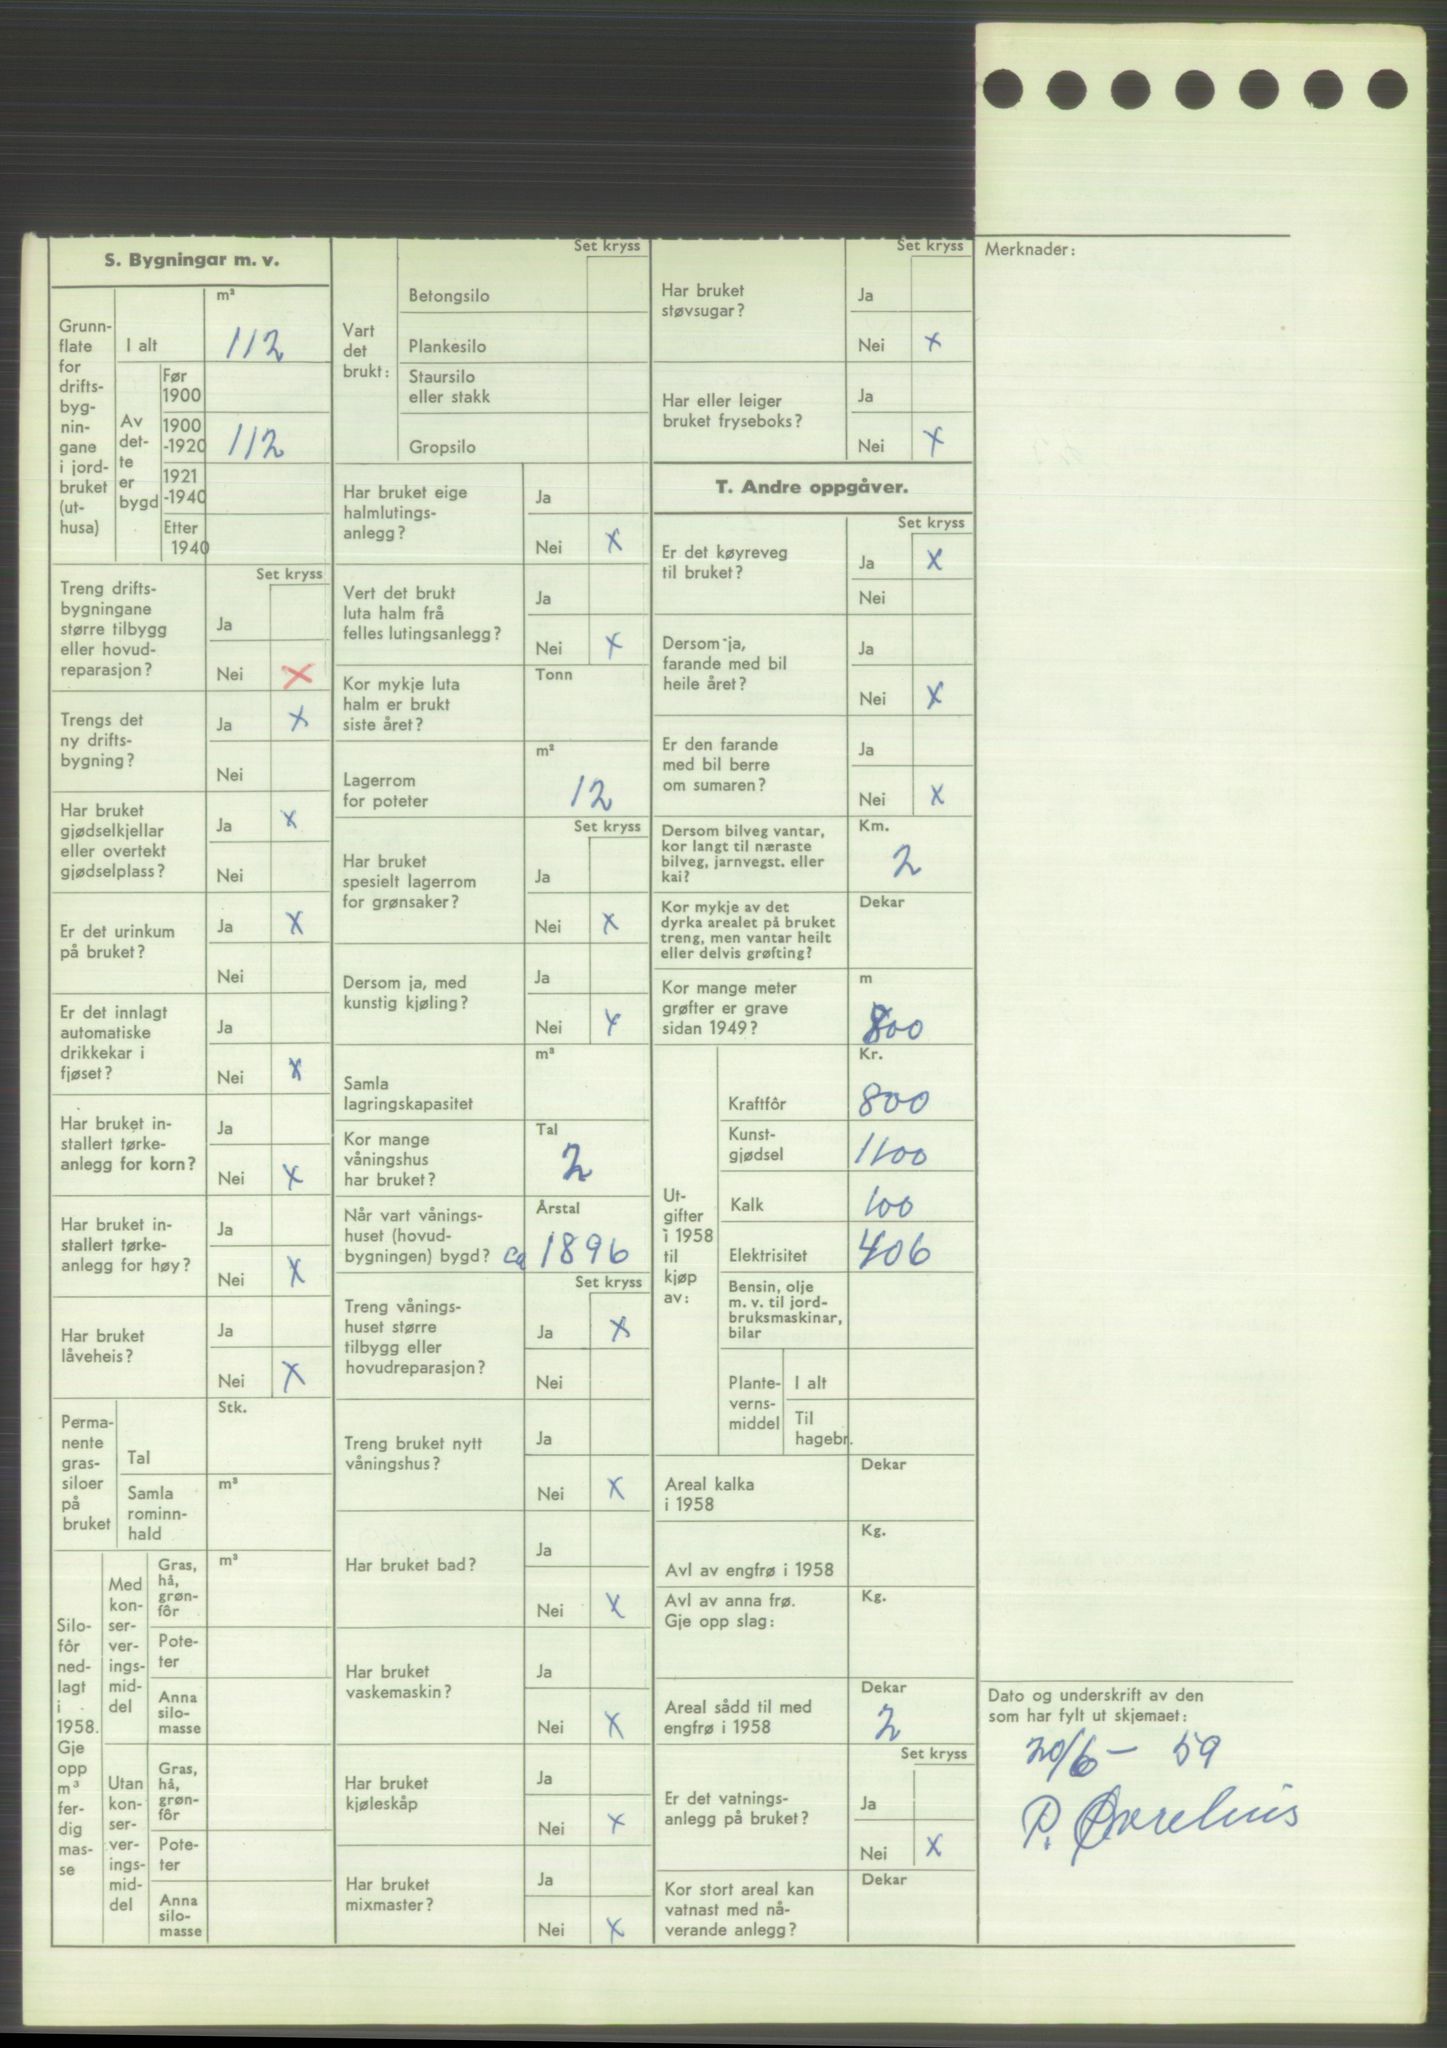 S. Bygningar m. v.
Grunn-
flate
for
drifts-
byg-
nin-
gane
i jord-
bruket
(ut-
husa)
m²
I alt 112
Av
det-
te
er
bygd
Før
1900
1900
-1920 112
1921
-1940
Etter
1940
Set kryss
Treng drifts-
bygningane
større tilbygg
eller hovud-
reparasjon?
Ja
Nei X
Trengs det
ny drifts-
bygning?
Ja X
Nei
Har bruket
gjødselkjellar
eller overtekt
gjødselplass?
Ja X
Nei
Er det urinkum
på bruket?
Ja X
Nei
Er det innlagt
automatiske
drikkekar i
fjøset?
Ja
Nei X
Har bruket in-
stallert tørke-
anlegg for korn?
Ja
Nei X
Har bruket in-
stallert tørke-
anlegg for høy?
Ja
Nei X
Har bruket
låveheis?
Ja
Nei X
Perma-
nente
gras-
siloer
på
bruket
Stk.
Tal
Samla
rominn-
hald
m³
Silo-
fôr
ned-
lagt
i
1958.
Gje
opp
m³
fer-
dig
mas-
se
Med
kon-
ser-
ver-
ings-
mid-
del
Gras,
hå,
grøn-
fôr
m³
Pote-
ter
Anna
silo-
masse
Utan
kon-
ser-
ver-
ings-
mid-
del
Gras,
hå,
grøn-
fôr
Pote-
ter
Anna
silo-
masse
Set kryss
Vart
det
brukt:
Betongsilo
Plankesilo
Staursilo
eller stakk
Gropsilo
Har bruket eige
halmlutings-
anlegg?
Ja
Nei X
Vert det brukt
luta halm frå
felles lutingsanlegg?
Ja
Nei X
Kor mykje luta
halm er brukt
siste året?
Tonn
Lagerrom
for poteter
m²
12
Set kryss
Har bruket
spesielt lagerrom
for grønsaker?
Ja
Nei X
Dersom ja, med
kunstig kjøling?
Ja
Nei X
Samla
lagringskapasitet
m³
Kor mange
våningshus
har bruket?
Tal
2
Når vart vånings-
huset (hovud-
bygningen) bygd?
Årstal
ca 1896
Set kryss
Treng vånings-
huset større
tilbygg eller
hovudreparasjon?
Ja X
Nei
Treng bruket nytt
våningshus?
Ja
Nei X
Har bruket bad?
Ja
Nei X
Har bruket
vaskemaskin?
Ja
Nei X
Har bruket
kjøleskåp
Ja
Nei X
Har bruket
mixmaster?
Ja
Nei X
Set kryss
Har bruket
støvsugar?
Ja
Nei X
Har eller leiger
bruket fryseboks?
Ja
Nei X
T. Andre oppgåver.
Set kryss
Er det køyreveg
til bruket?
Ja X
Nei
Dersom ja,
farande med bil
heile året?
Ja
Nei X
Er den farande
med bil berre
om sumaren?
Ja
Nei X
Dersom bilveg vantar,
kor langt til næraste
bilveg, jarnvegst. eller
kai?
Km.
2
Kor mykje av det
dyrka arealet på bruket
treng, men vantar heilt
eller delvis grøfting?
Dekar
Kor mange meter
grøfter er grave
sidan 1949?
m
800
Ut-
gifter
i 1958
til
kjøp
av:
Kr.
Kraftfôr 800
Kunst-
gjødsel 1100
Kalk 100
Elektrisitet 406
Bensin, olje
m. v. til jord-
bruksmaskinar,
bilar
Plante-
verns-
middel
I alt
Til
hagebr.
Areal kalka
i 1958
Dekar
Avl av engfrø i 1958
Kg.
Avl av anna frø.
Gje opp slag:
Kg.
Areal sådd til med
engfrø i 1958
Dekar
2
Set kryss
Er det vatnings-
anlegg på bruket?
Ja
Nei X
Kor stort areal kan
vatnast med nå-
verande anlegg?
Dekar
Merknader:
Dato og underskrift av den
som har fylt ut skjemaet:
20/6 - 59
P.